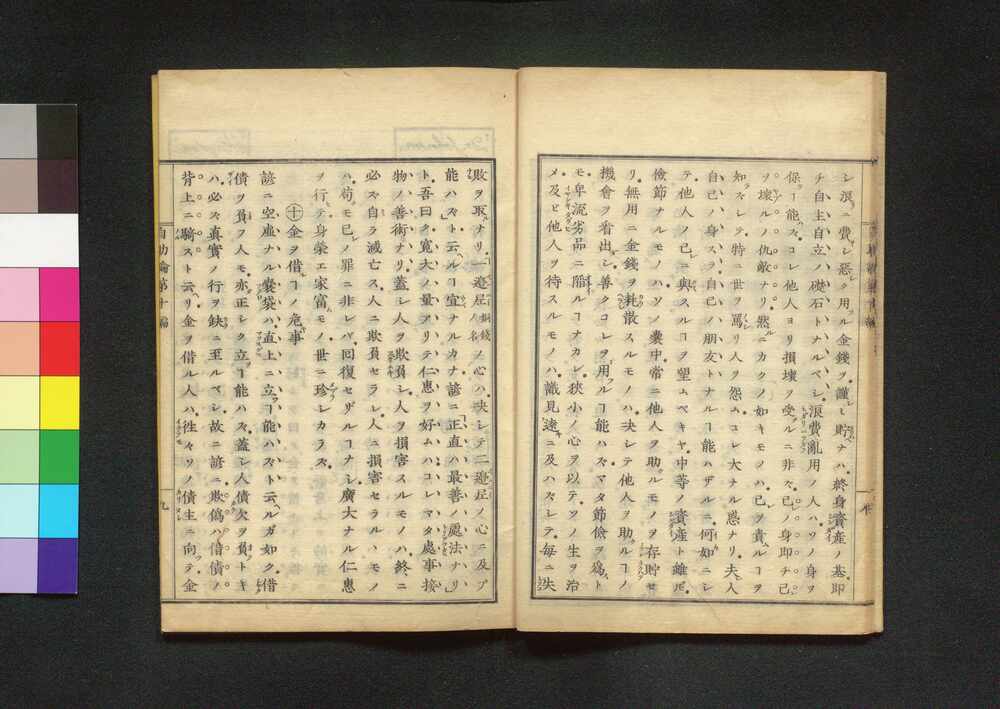 シ浪ニ費シ惡ク用フル金錢ヲ謹ミ貯ヘナハ終身資產ノ基即
チ自主自立ノ礎石トナルベシ浪費亂用ノ人ハソノ身ヲ
保ツ能ハスコレ他人ヨリ損壞ヲ受ルニ非ス己ノ身即チ己
ヲ壞ルノ仇敵ナリ然ルニカクノ如キモノハ己ヲ責ルヿヲ
知ラスシテ特ニ世ヲ罵リ人ヲ怨ムコレ大ナル惑ナリ夫レ人
自己ノ身スラ自己ノ朋友トナルヿ能ハザルニ何如ニシ
テ他人ノ己ニ與スルヿヲ望ムベキヤ中等ノ資產ト雖𪜈
儉節ナルモノハソノ囊中常ニ他人ヲ助ルモノヲ存貯セ
リ無用ニ金錢ヲ耗散スルモノハ决シテ他人ヲ助ルヿノ
機會ヲ看出シ善クコレヲ用フルヿ能ハスマタ節儉ヲ爲ト
モ卑流劣品ニ陥ルヿナカレ狹小ノ心ヲ以テソノ生ヲ治
メ及ビ他人ヲ待スルモノハ識見遠ニ及ハスシテ毎ニ失
敗ヲ取ルナリ一邊尼銅錢ノ名ノ心ハ决シテ二邊尼ノ心ニ及ブ
能ハスト云ヘルヿ宜ナルカナ諺ニ正直ハ最善ノ處法ナリ
ト吾曰ク寛大ノ量アリテ仁惠ヲ好ムハコレマタ處事接
物ノ善術ナリ蓋シ人ヲ欺負シ人ヲ損害スルモノハ終ニ
必ス自ラ滅亡ス人ニ欺負セラレ人ニ損害セラルハモノ
ハ苟モ己ノ罪ニ非レバ回復セザルヿナシ廣大ナル仁惠
ヲ行テ身榮エ家富ムモノ世ニ珍シカラス
㊉金ヲ借ルヿノ危事
諺ニ空虛ナル囊袋ハ直上ニ立ツヿ能ハスト云ヘルガ如ク借
債ヲ負フ人モ亦正シク立ツヿ能ハス蓋シ人債欠ヲ負トキ
ハ必ス真實ノ行ヲ缺ニ至ルベシ故ニ諺ニ欺僞ハ借債ノ
背上ニ騎スト云リ金ヲ借ル人ハ徃々ソノ債主ニ向テ金
自助論第十編
九